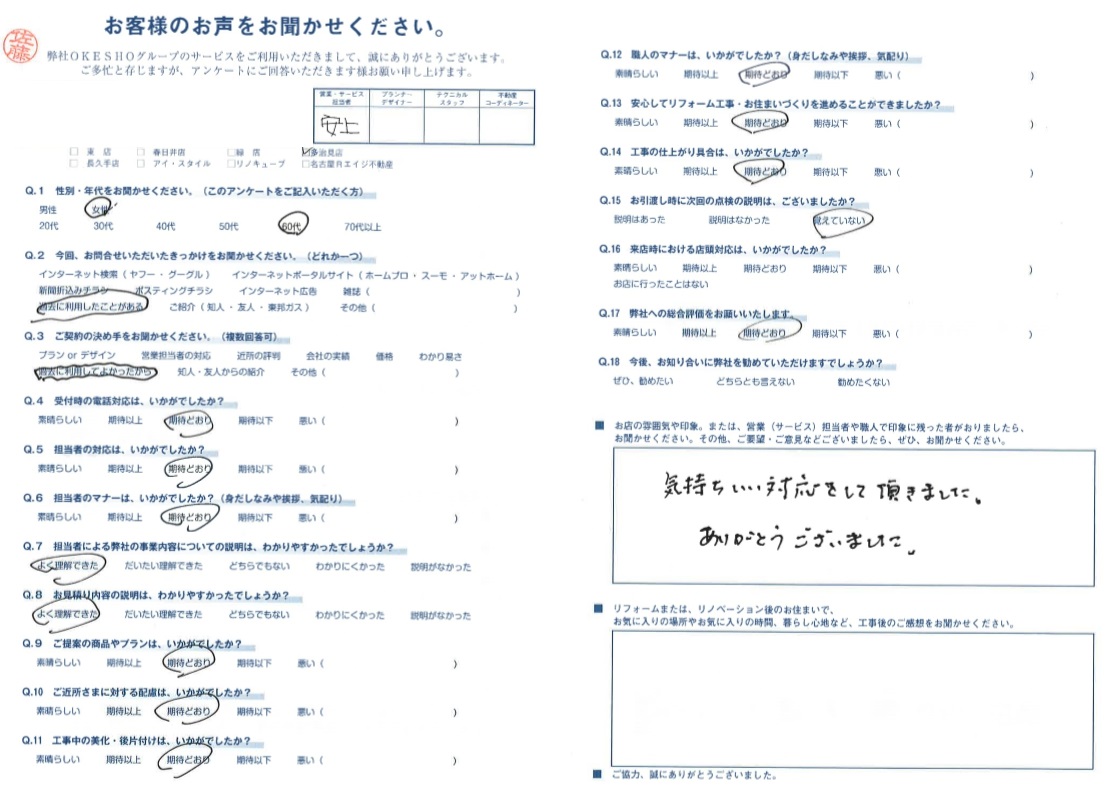 お客様のお声をお聞かせください。
佐藤
弊社OKESHOグループのサービスをご利用いただきまして、誠にありがとうございます。
ご多忙と存じますが、アンケートにご回答いただきます様お願い申し上げます。
営業・サービス担当者 プランナーデザイナー テクニカルスタッフ 不動産コーディネーター
安上
□ 東 店 □ 春日井店 □緑 店 ☑多治見店
□ 長久手店 □ アイ・スタイル □リノキューブ □名古屋R.エイジ不動産
Q.1 性別・年代をお聞かせください。（このアンケートをご記入いただく方）
男性 女性
20代 30代 40代 50代 60代 70代以上
Q.2 今回、お問合せいただいたきっかけをお聞かせください。（どれか一つ）
インターネット検索（ ヤフー ・ グーグル ） インターネットポータルサイト（ ホームプロ ・ スーモ ・ アットホーム ）
新聞折込みチラシ ポスティングチラシ インターネット広告 雑誌（ ）
過去に利用したことがある ご紹介（ 知人 ・ 友人 ・ 東邦ガス ） その他（ ）
Q.3 ご契約の決め手をお聞かせください。（複数回答可）
プラン or デザイン 営業担当者の対応 近所の評判 会社の実績 価格 わかり易さ
過去に利用してよかったから 知人・友人からの紹介 その他（ ）
Q.4 受付時の電話対応は、いかがでしたか？
素晴らしい 期待以上 期待どおり 期待以下 悪い（ ）
Q.5 担当者の対応は、いかがでしたか？
素晴らしい 期待以上 期待どおり 期待以下 悪い（ ）
Q.6 担当者のマナーは、いかがでしたか？（身だしなみや挨拶、気配り）
素晴らしい 期待以上 期待どおり 期待以下 悪い（ ）
Q.7 担当者による弊社の事業内容についての説明は、わかりやすかったでしょうか？
よく理解できた だいたい理解できた どちらでもない わかりにくかった 説明がなかった
Q.8 お見積り内容の説明は、わかりやすかったでしょうか？
よく理解できた だいたい理解できた どちらでもない わかりにくかった 説明がなかった
Q.9 ご提案の商品やプランは、いかがでしたか？
素晴らしい 期待以上 期待どおり 期待以下 悪い（ ）
Q.10 ご近所さまに対する配慮は、いかがでしたか？
素晴らしい 期待以上 期待どおり 期待以下 悪い（ ）
Q.11 工事中の美化・後片付けは、いかがでしたか？
素晴らしい 期待以上 期待どおり 期待以下 悪い（ ）
Q.12 職人のマナーは、いかがでしたか？（身だしなみや挨拶、気配り）
素晴らしい 期待以上 期待どおり 期待以下 悪い（ ）
Q.13 安心してリフォーム工事・お住まいづくりを進めることができましたか？
素晴らしい 期待以上 期待どおり 期待以下 悪い（ ）
Q.14 工事の仕上がり具合は、いかがでしたか？
素晴らしい 期待以上 期待どおり 期待以下 悪い（ ）
Q.15 お引渡し時に次回の点検の説明は、ございましたか？
説明はあった 説明はなかった 覚えていない
Q.16 来店時における店頭対応は、いかがでしたか？
素晴らしい 期待以上 期待どおり 期待以下 悪い（ ）
お店に行ったことはない
Q.17 弊社への総合評価をお願いいたします。
素晴らしい 期待以上 期待どおり 期待以下 悪い（ ）
Q.18 今後、お知り合いに弊社を勧めていただけますでしょうか？
ぜひ、勧めたい どちらとも言えない 勧めたくない
■ お店の雰囲気や印象。または、営業（サービス）担当者や職人で印象に残った者がおりましたら、
お聞かせください。その他、ご要望・ご意見などございましたら、ぜひ、お聞かせください。
気持ちいい対応をして頂きました。
ありがとうございました。
■ リフォームまたは、リノベーション後のお住まいで、
お気に入りの場所やお気に入りの時間、暮らし心地など、工事後のご感想をお聞かせください。
■ ご協力、誠にありがとうございました。